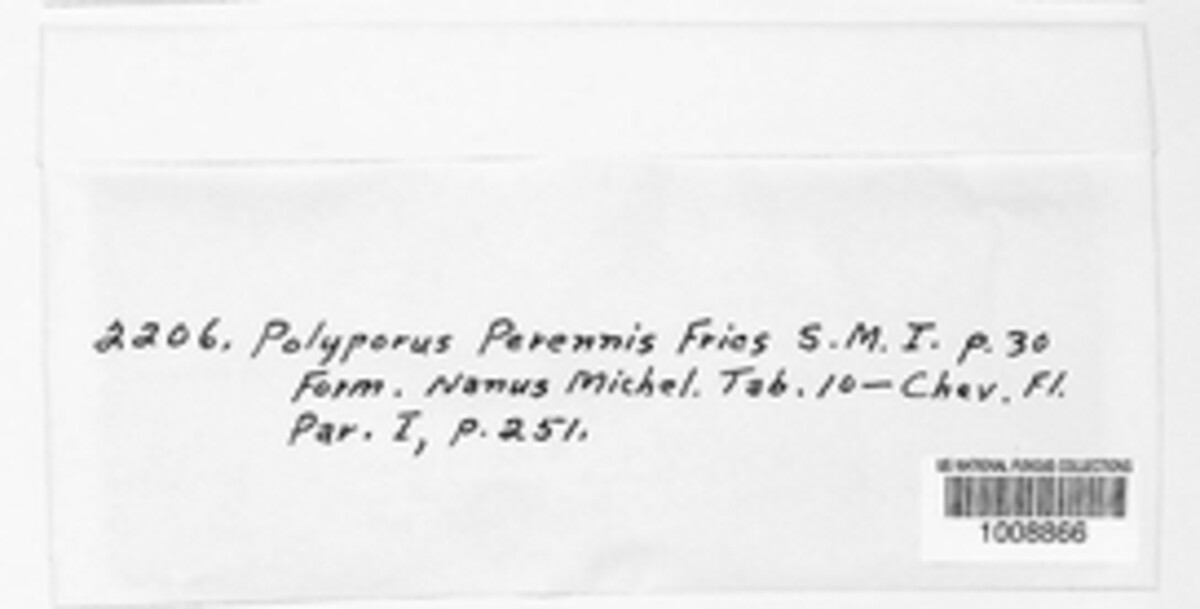 2206. Polyporus Perennis Fries S.M. I. p. 30
Form. Nanus Michel. Tab. 10 — Chev. Fl.
Par. I, p. 251.
US NATIONAL FUNGUS COLLECTIONS
1008866